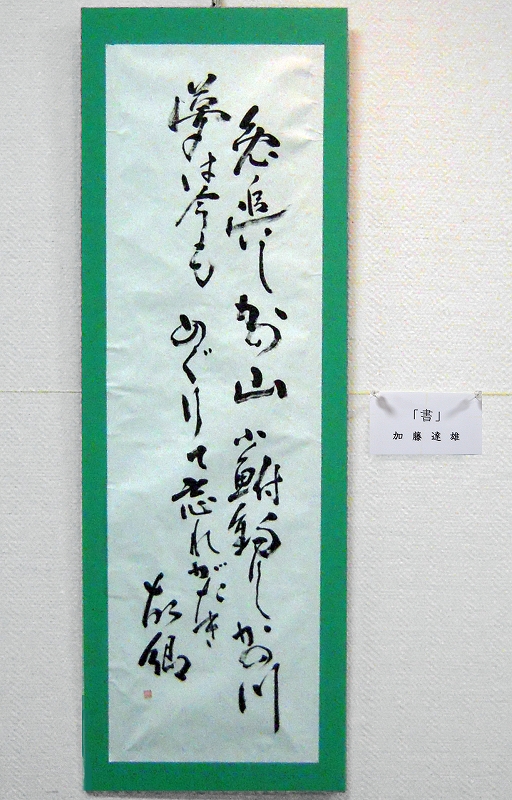 兎追いしかの山小鮒釣りしかの川
夢は今もめぐりて忘れがたき
故郷
「書」
加藤達雄